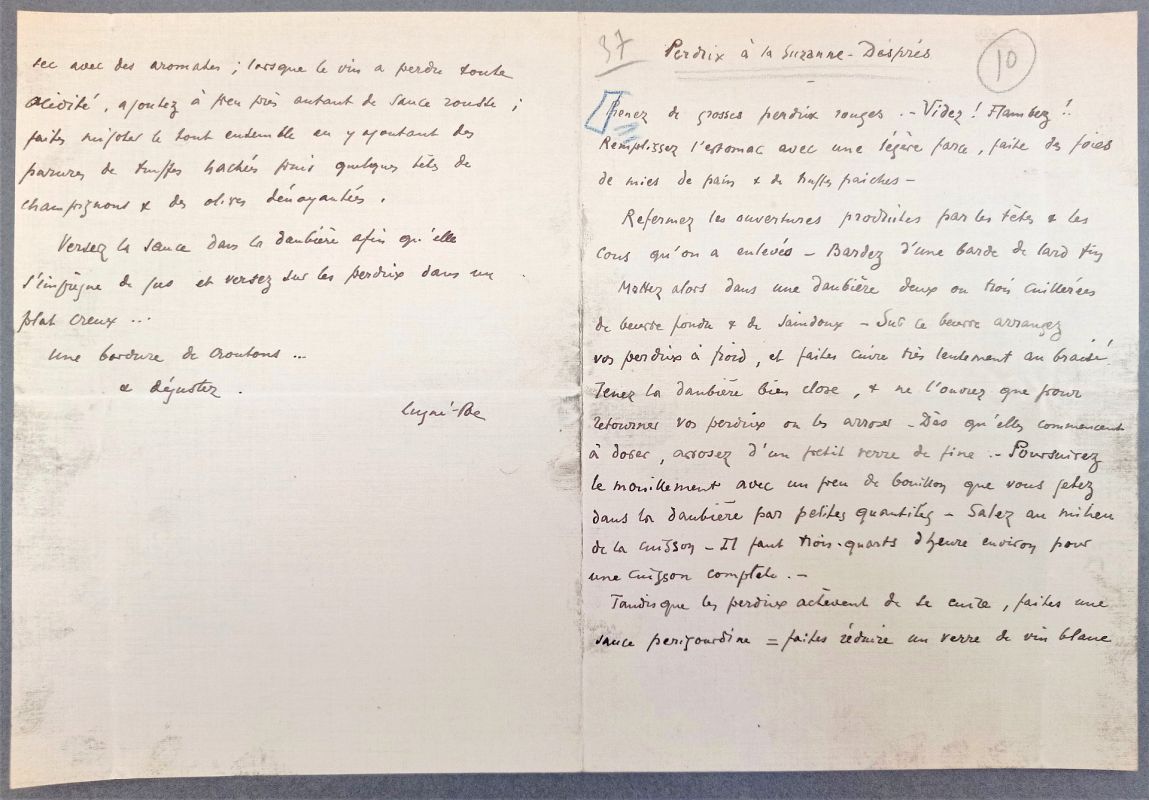 37
Perdrix à la Suzanne-Desprès
10
Prenez de grosses perdrix rouges .- Videz ! Flambez !!
Remplissez l'estomac avec une légère farce, faite des foies
de mies de pain & de truffes fraiches -
Refermez les ouvertures produites par les têtes & les
cous qu'on a enlevés - Bardez d'une barde de lard fin
Mettez alors dans une daubière deux ou trois cuillerées
de beurre fondu & de saindoux - Sur ce beurre arrangez
vos perdrix à froid, et faites cuire très lentement au braisé.
Tenez la daubière bien close, & ne l'ouvrez que pour
retourner vos perdrix ou les arroser - Dès qu'elles commencent
à dorer, arrosez d'un petit verre de fine .- Poursuivez
le mouillement avec un peu de bouillon que vous jetez
dans la daubière par petites quantités - Salez au milieu
de la cuisson - Il faut trois-quarts d'heure environ pour
une cuisson complète . -
Tandis que les perdrix achèvent de se cuire, faites une
sauce perigourdine = faites réduire un verre de vin blanc
sec avec des aromates ; lorsque le vin a perdu toute
acidité, ajoutez à peu près autant de sauce rousse ;
faites mijoter le tout ensemble en y ajoutant des
parures de truffes hachés puis quelques têtes de
champignons & des olives dénoyautées.
Versez la sauce dans la daubière afin qu'elle
s'imprègne de jus et versez sur les perdrix dans un
plat creux ...
une bordure de croutons ...
& dégustez .
Lugné-Poe